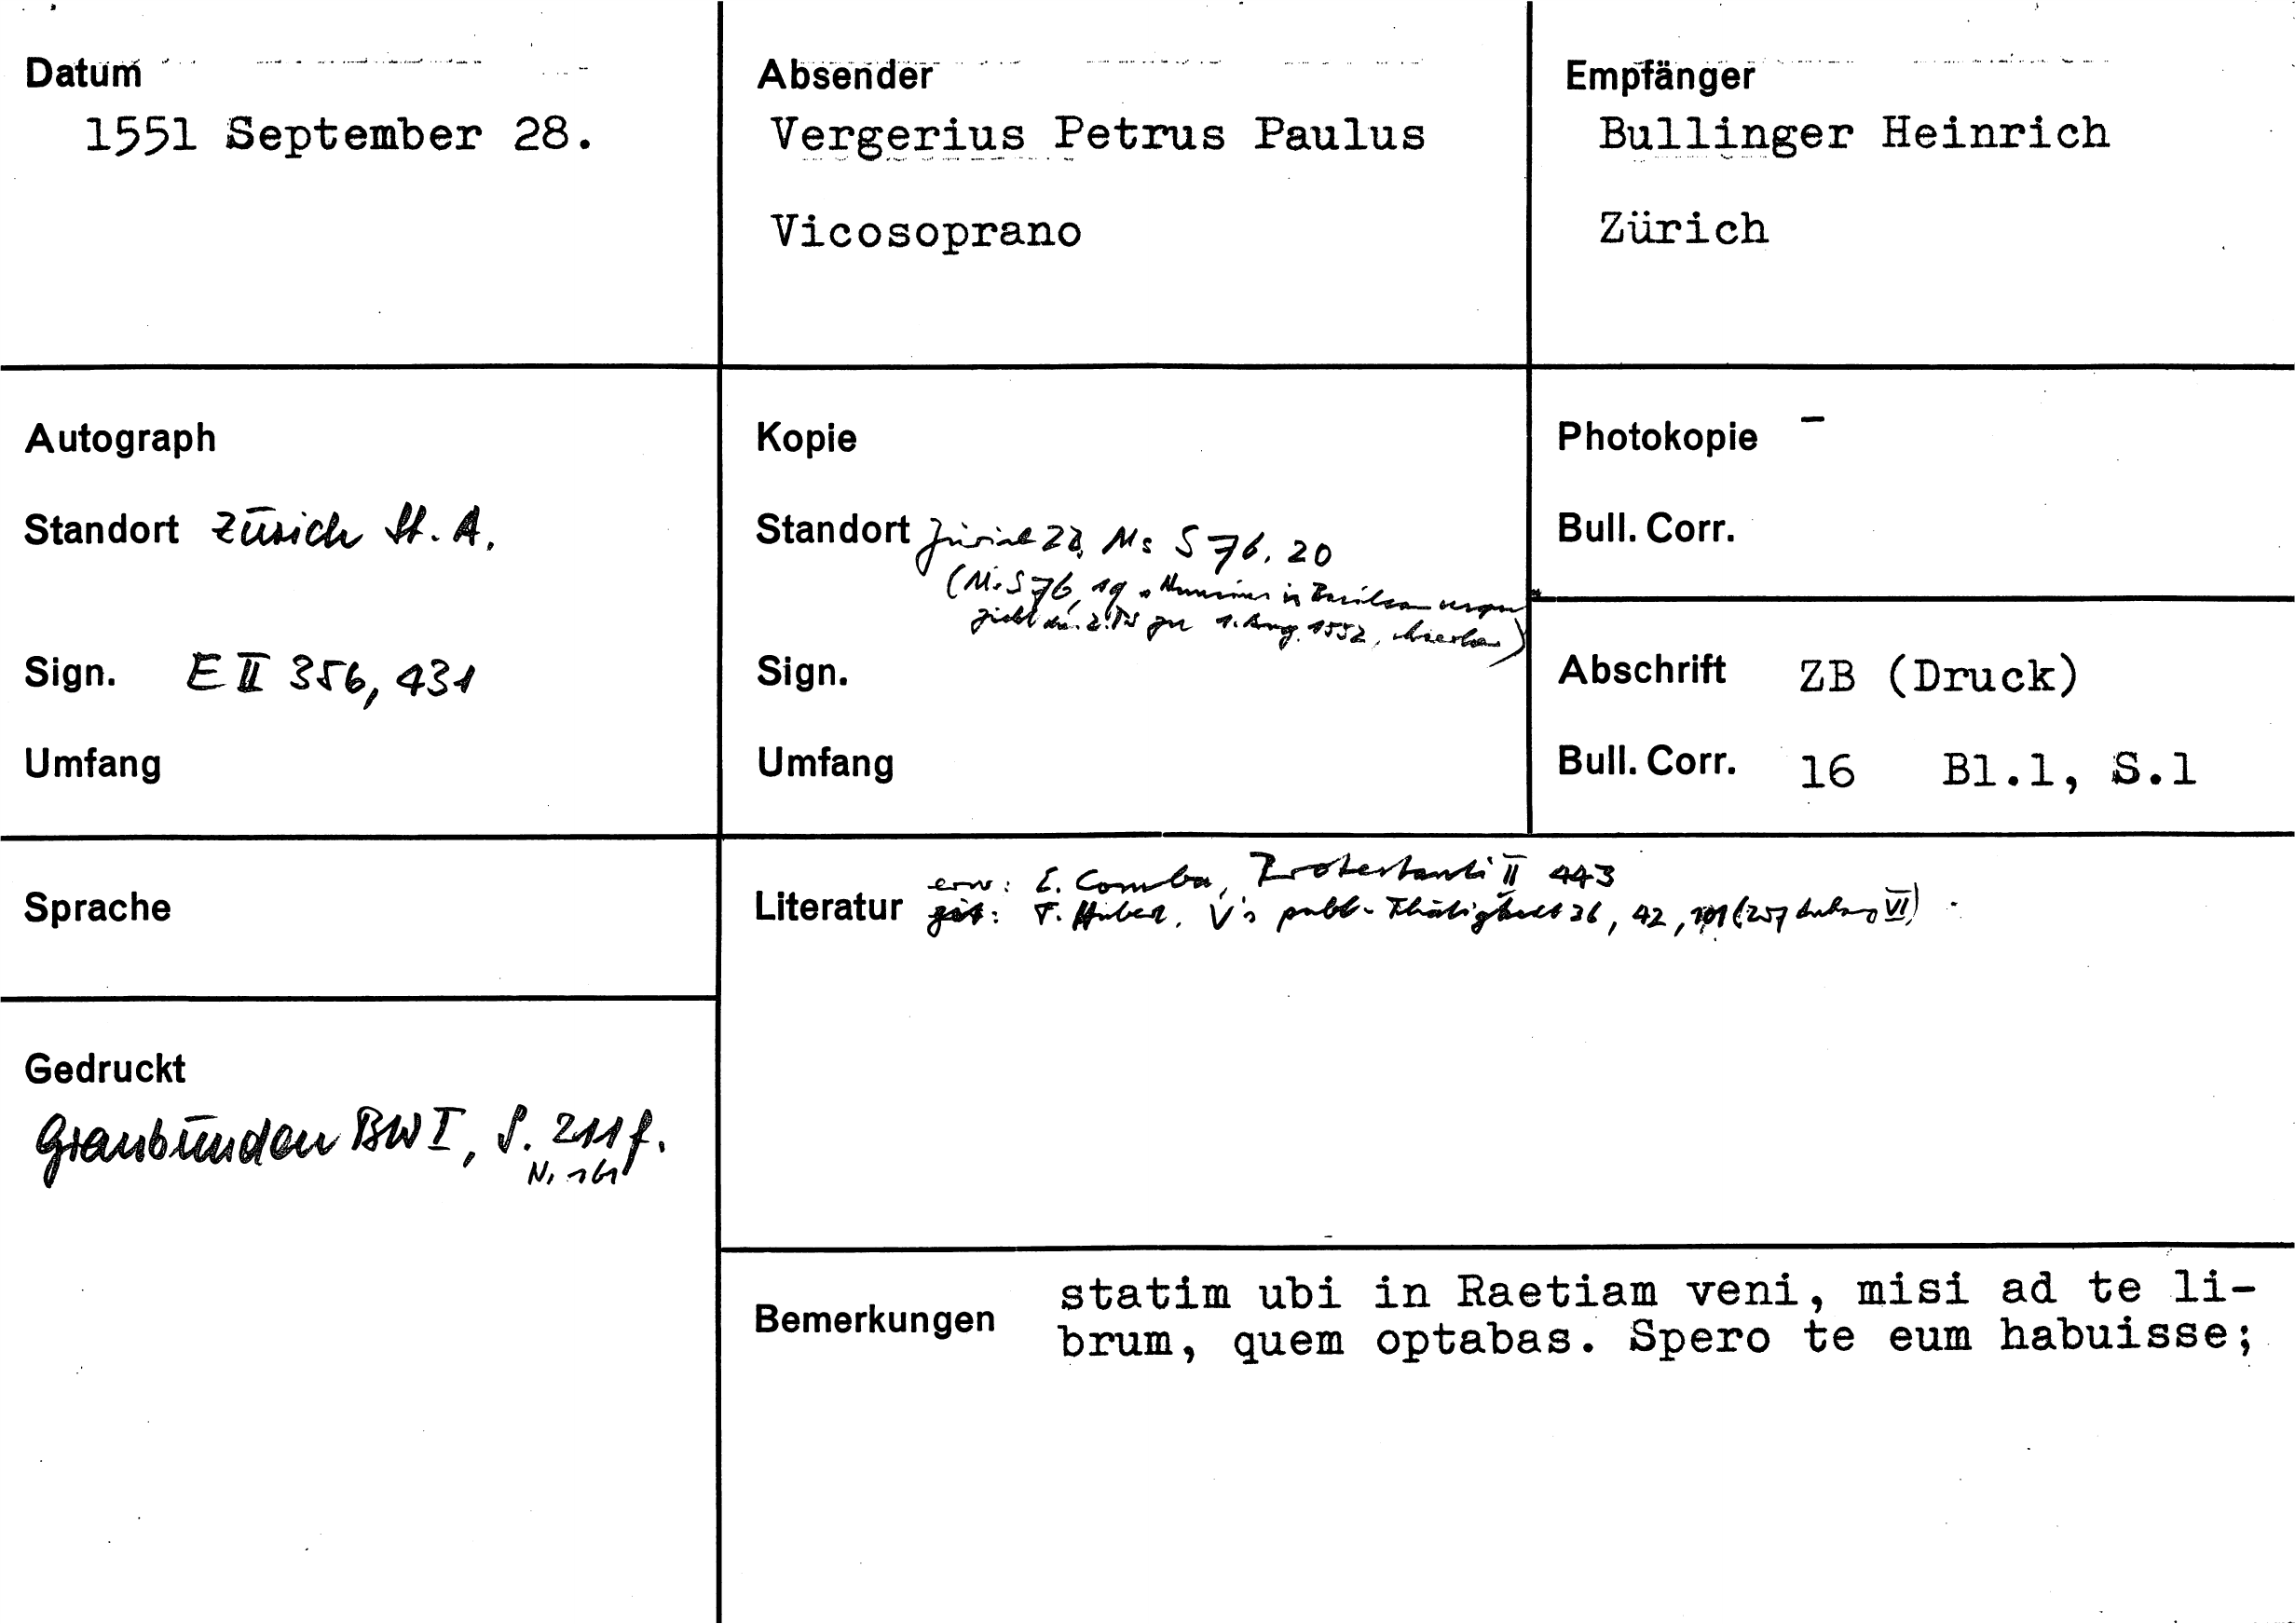 Datum
1551 September 28.
Absender
Vergerius Petrus Paulus
Vicosoprano
Empfänger
Bullinger Heinrich
Zürich
Autograph
Standort Zürich St. A.
Sign. E II 356, 431
Umfang
Kopie
Standort Zürich ZB, Ms S 76, 20
(Ms S 76, 19
1. Aug. 1552,
Sign.
Umfang
Photokopie -
Bull. Corr.
Abschrift ZB (Druck)
Bull. Corr. 16 Bl.1, S.1
Sprache
Literatur erw: E. Comba, Protestanti II 443
F. Hubert, V's publ. Thätigkeit 26, 42, 101 (257 Anhang VI)
Gedruckt
Graubünden BW I, S. 211 f.
Nr 161
Bemerkungen statim ubi in Raetiam veni, misi ad te li-
brum, quem optabas. Spero te eum habuisse;